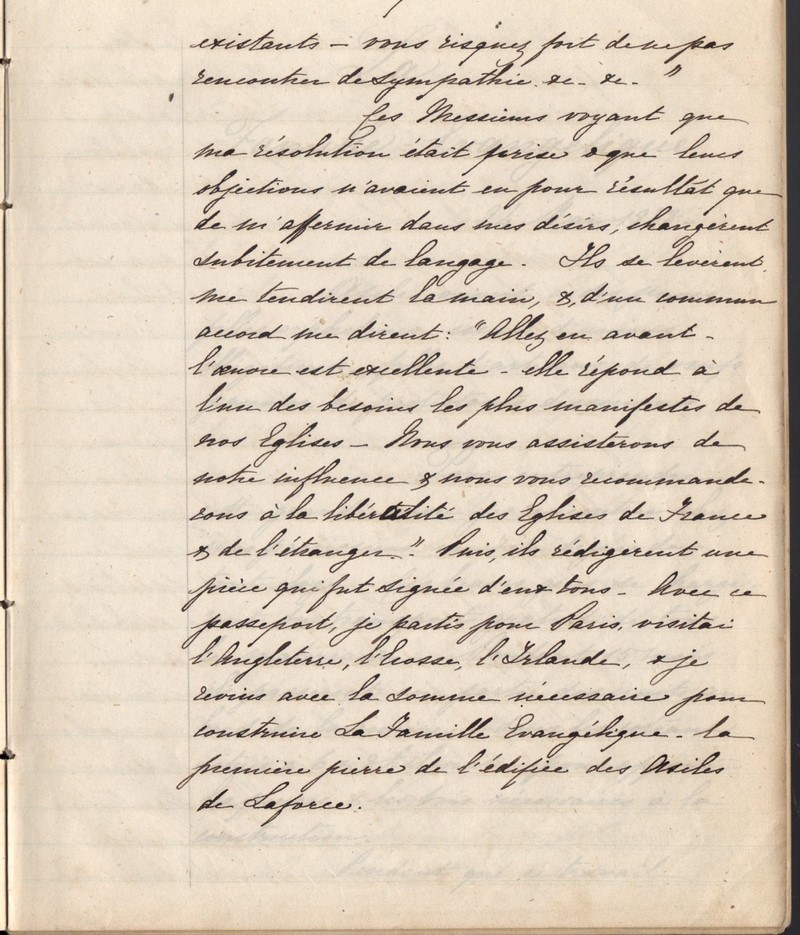 existants – vous risquez fort de ne pas
rencontrer de sympathie. &c. &c. "
Ces Messieurs voyant que
ma résolution était prise & que leurs
objections n'avaient eu pour résultat que
de m'affermir dans mes désirs, changèrent
subitement de langage. Ils se levèrent,
me tendirent la main, &, d'un commun
accord me dirent : "Allez en avant –
l'œuvre est excellente – elle répond à
l'un des besoins les plus manifestes de
nos Eglises – Nous vous assisterons de
notre influence & nous vous recommande-
rons à la libéralité des Eglises de France
& de l'étranger." Puis, ils rédigèrent une
pièce qui fut signée d'eux tous – Avec ce
passeport, je partis pour Paris, visitai
l'Angleterre, l'Ecosse, l'Irlande, & je
revins avec la somme nécessaire pour
construire La Famille Evangélique – la
première pierre de l'édifice des Asiles
de Laforce.